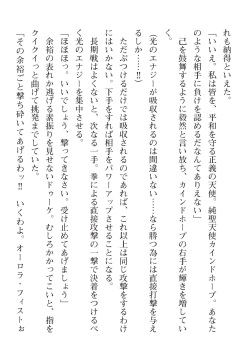 れも納得といえた。
「いいえ。私は皆を、平和を守る正義の天使、純聖天使カインドホープ。あなた
のような相手に負けを認めるだなんてありえない」
　己を鼓舞するように毅然と言い放ち、カインドホープの右手が輝きを増してい
く。
（光のエナジーが吸収されるのは間違いない……なら勝つ為には直接打撃を与え
るしか……‼）
　ただぶつけるだけでは吸収されるのであれば、これ以上は同じ攻撃をするわけ
にはいかない。下手をすれば相手をパワーアップさせることになる。
　長期戦はよくないと、次なる一手、拳による直接攻撃の一撃で決着をつけるべ
く光のエナジーを集中させる。
「ほほほっ。いいでしょう、撃ってきなさい。受け止めてあげましょう」
　余裕の表れか逃げる素振りを見せないドゥーケ。むしろかかってこいと、指を
クイクイっと曲げて挑発までしていた。
「その余裕ごと撃ち砕いてあげるわッ‼　いくわよ。オーロラ・フィストぉ